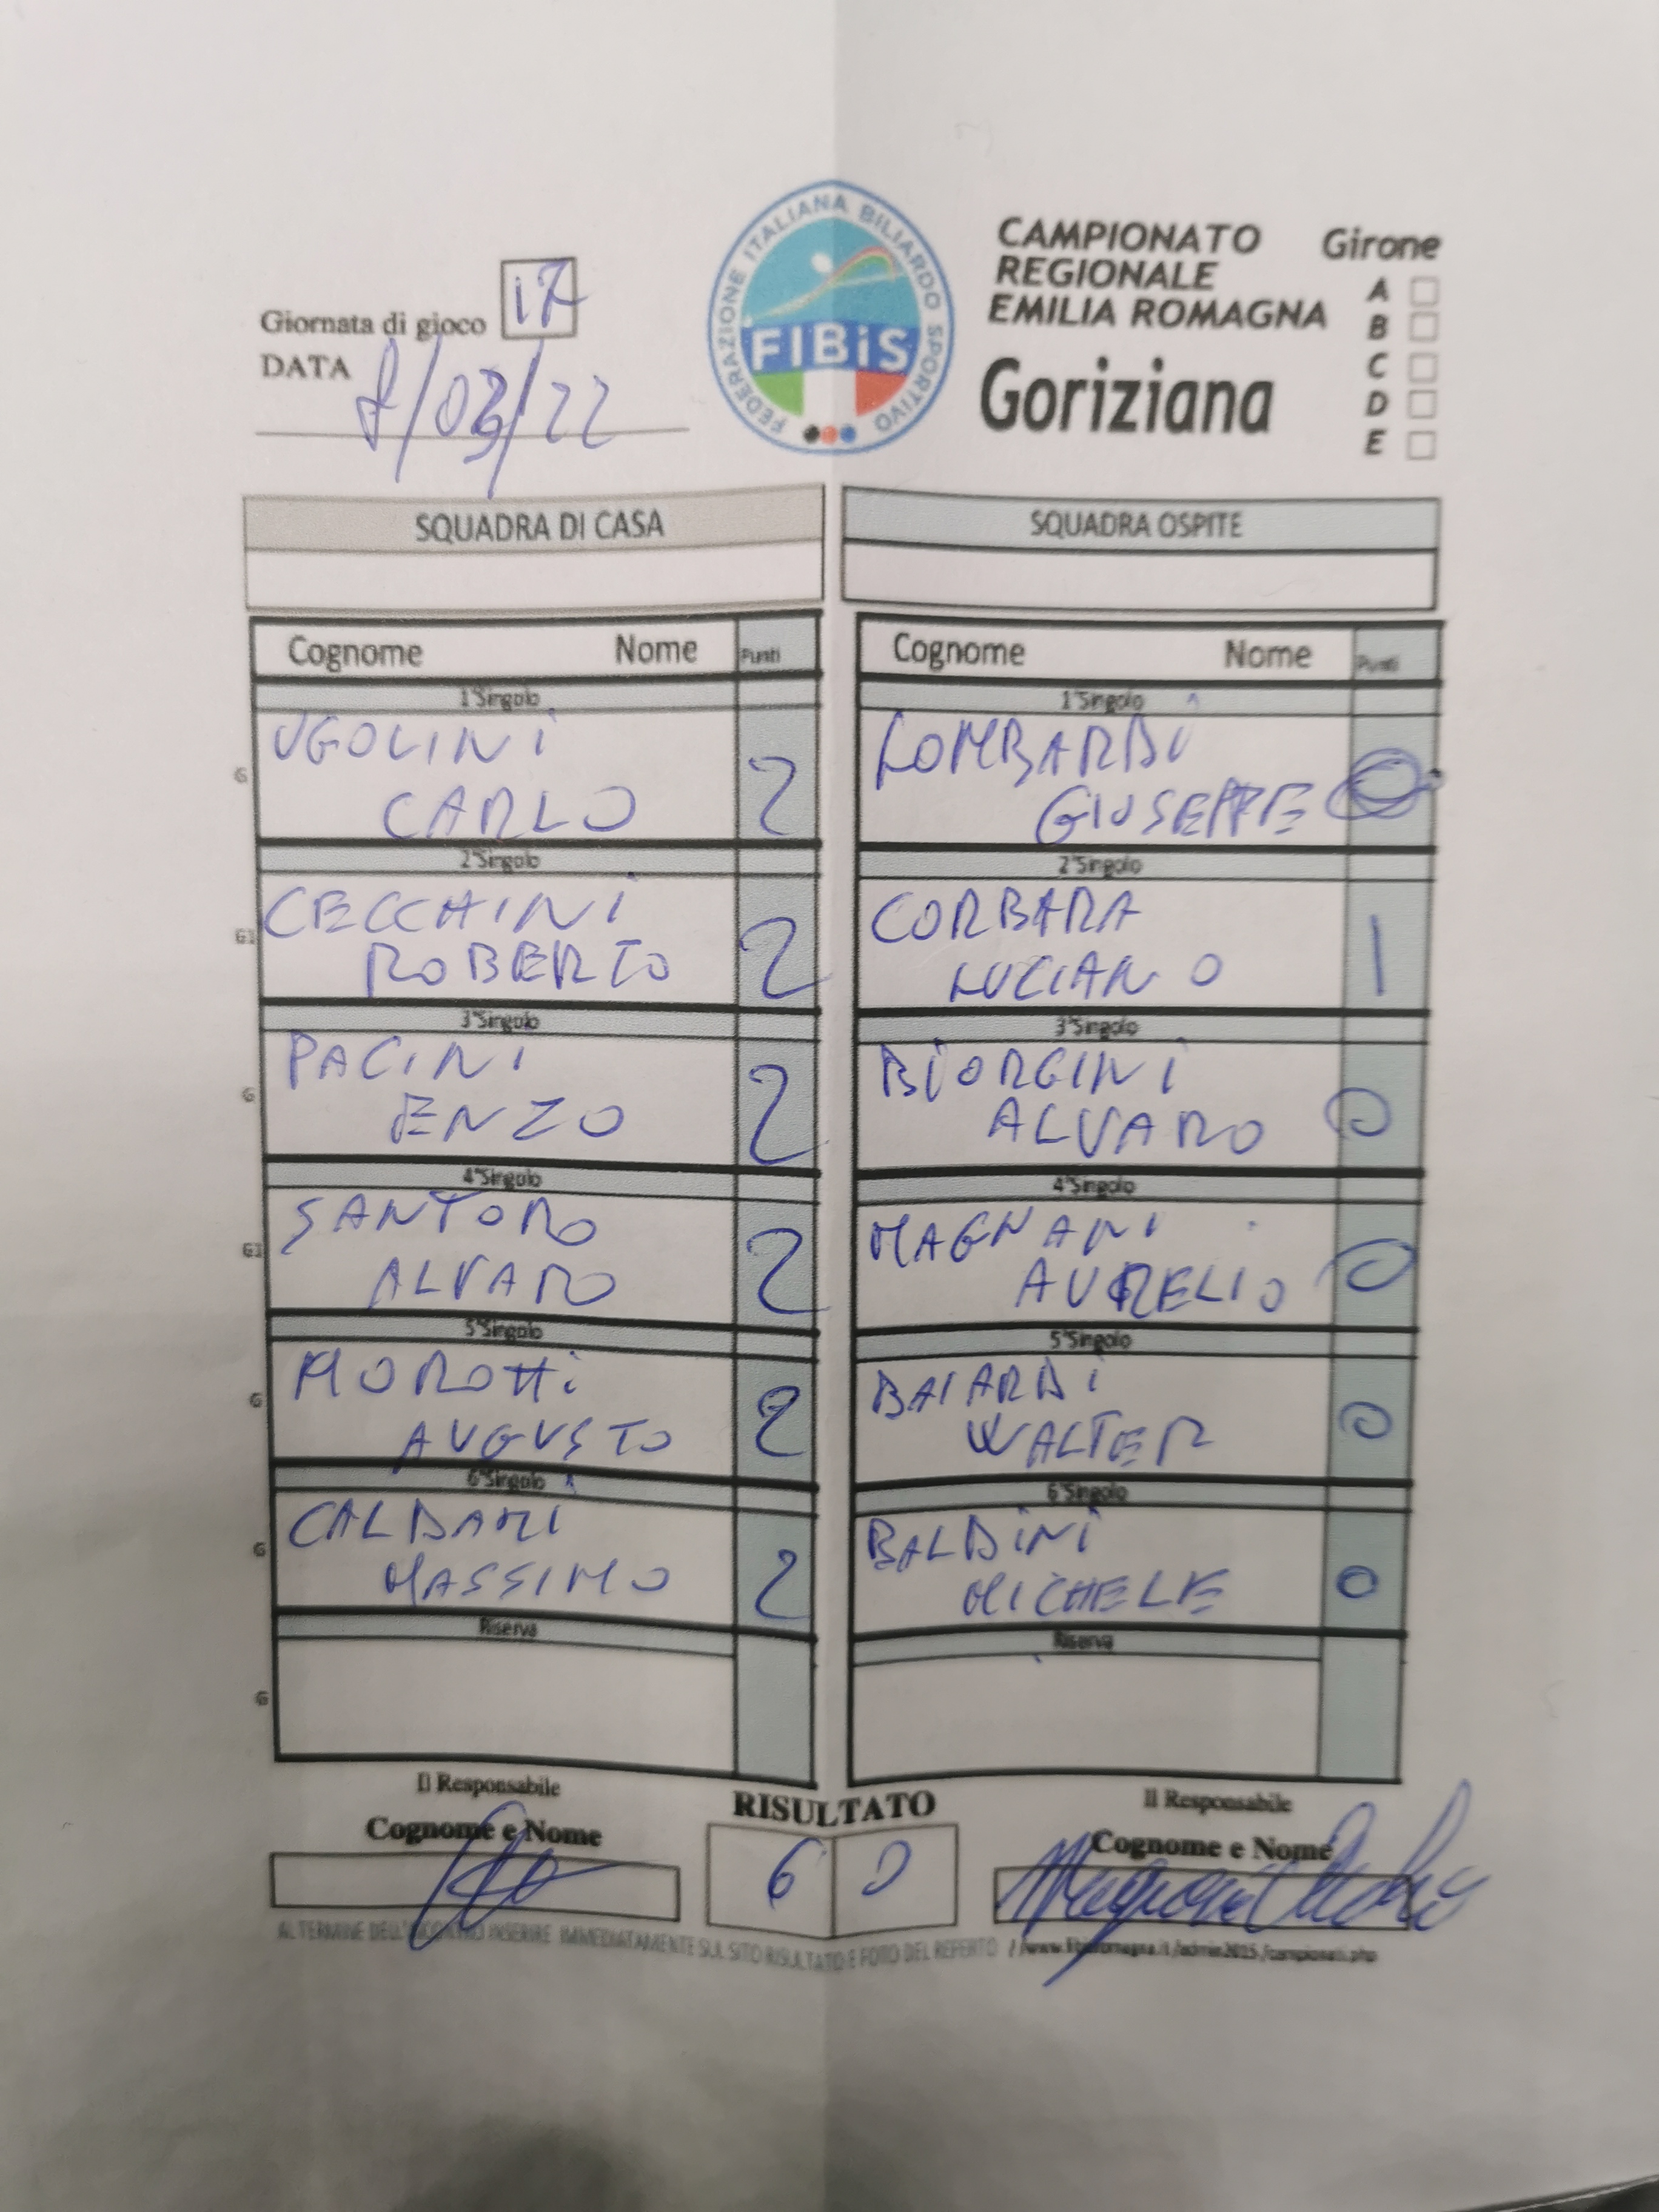 FEDERAZIONE ITALIANA BILIARDO SPORTIVO
FIBiS
CAMPIONATO
REGIONALE
EMILIA ROMAGNA
Goriziana
Girone
A
B
C
D
E
Giornata di gioco 17
DATA
/03/22
SQUADRA DI CASA
Cognome Nome Punti
1°Singolo
G
UGOLINI
CARLO 2
2°Singolo
G1
CECCHINI
ROBERTO 2
3°Singolo
G
PACINI
ENZO 2
4°Singolo
G1
SANTORO
ALVARO 2
5°Singolo
G
MOROTTI
AUGUSTO 2
6°Singolo
G
CALDARI
MASSIMO 2
Riserva
G
SQUADRA OSPITE
Cognome Nome Punti
1°Singolo
LOMBARDI
GIUSEPPE 0
2°Singolo
CORBARA
LUCIANO 1
3°Singolo
BIORGINI
ALVARO 0
4°Singolo
MAGNANI
AURELIO 0
5°Singolo
BAIARDI
WALTER 0
6°Singolo
BALDINI
MICHELE 0
Riserva
Il Responsabile
Cognome e Nome
RISULTATO
6 0
Il Responsabile
Cognome e Nome
AL TERMINE DELL'INCONTRO INSERIRE IMMEDIATAMENTE SUL SITO RISULTATO E FOTO DEL REFERTO